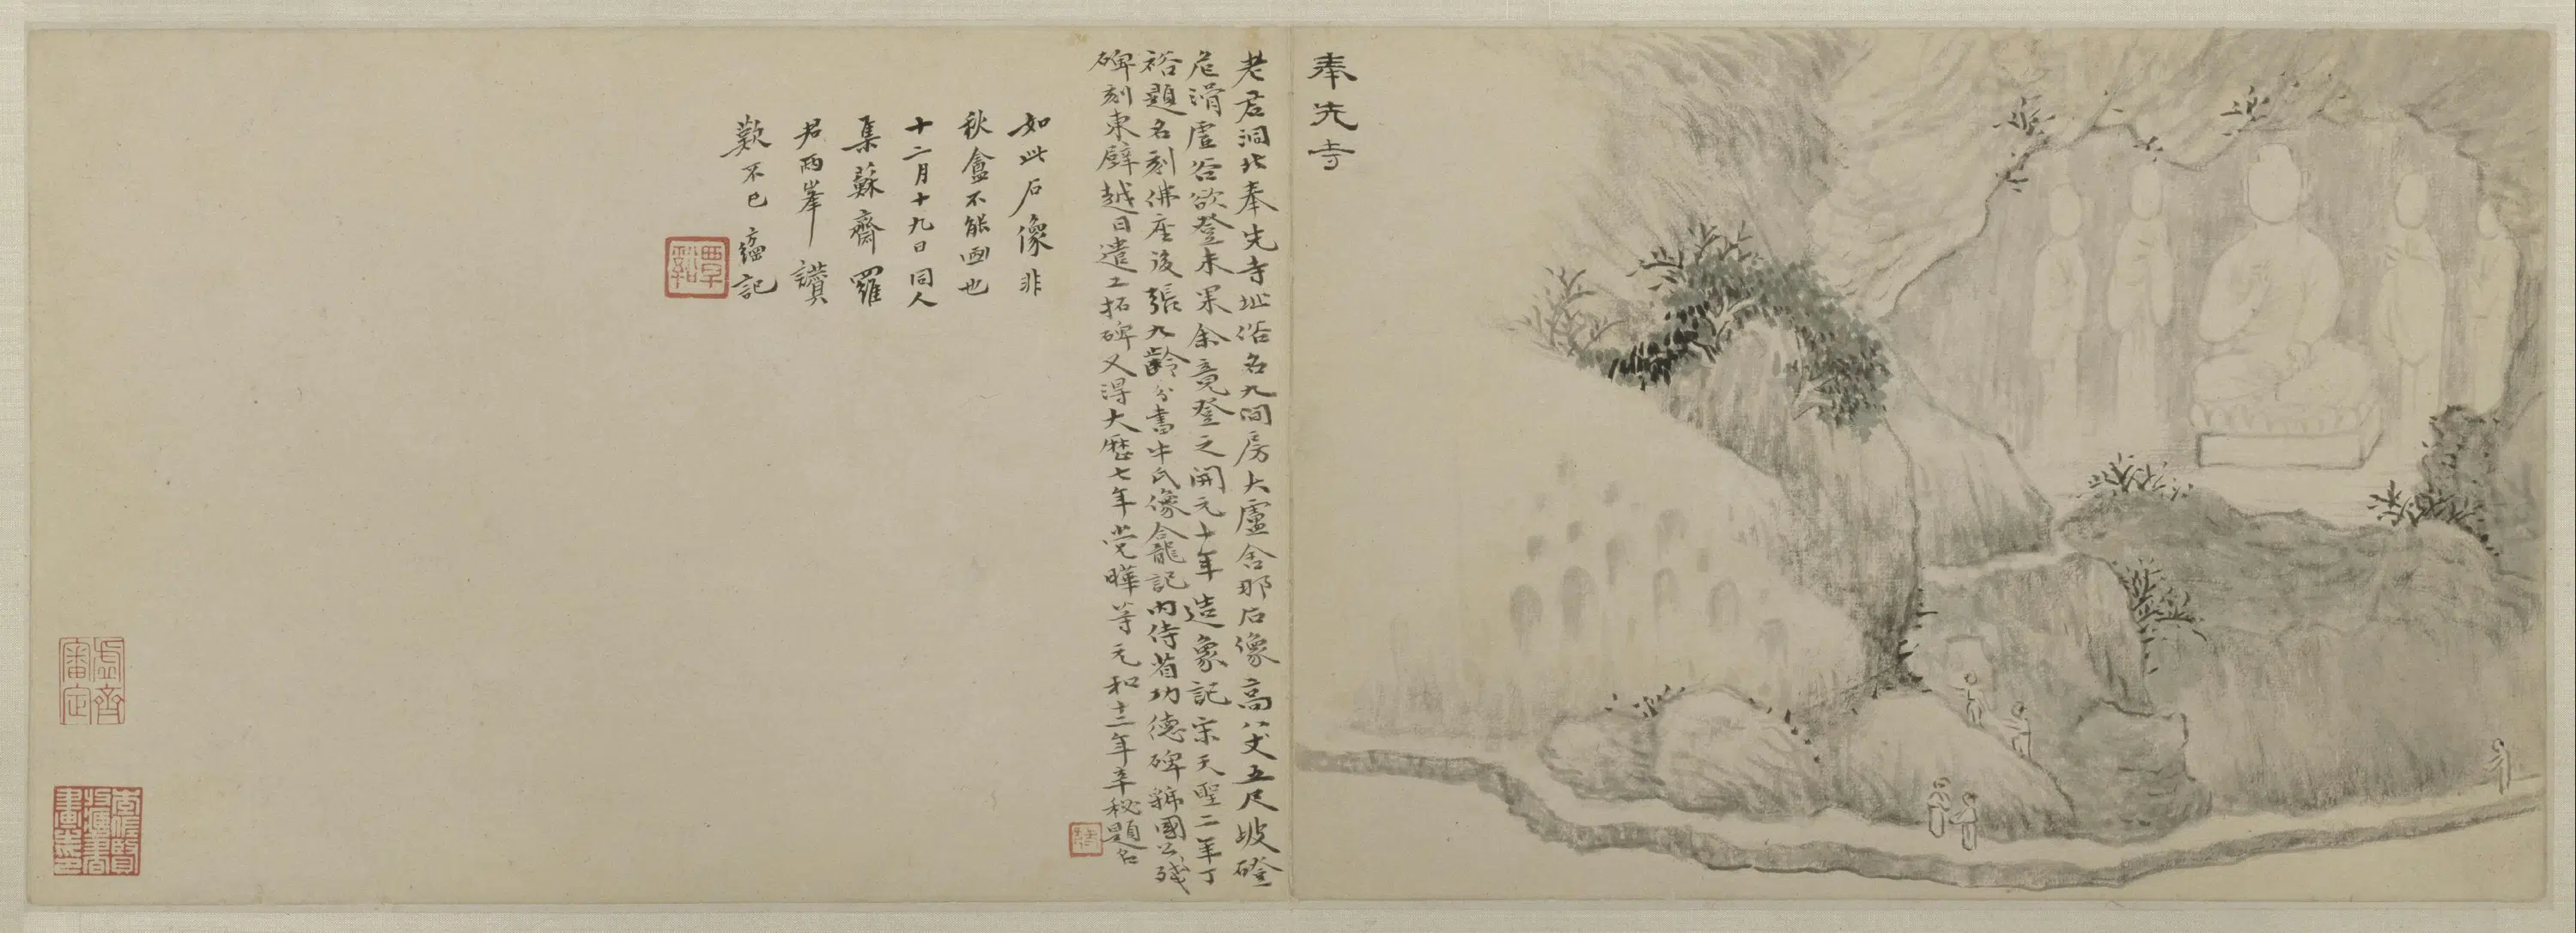 奉先寺
老君洞北奉先寺址俗名九間房大盧舍那石像高八丈五尺坡磴
危滑盧谷欲登未果余竟登之開元十年造象記宋天聖二年丁
裕題名刻佛座後張九齡分書牛氏像龕記内侍省功德碑虢國公殘
碑刻東壁越日遣工拓碑又得大歷七年党曄等元和十二年辛秘題名
如此石像非
秋盦不能画也
十二月十九日同人
集蘇齋羅
君兩峯讚
歎不已
記
覃谿
虛齋審定